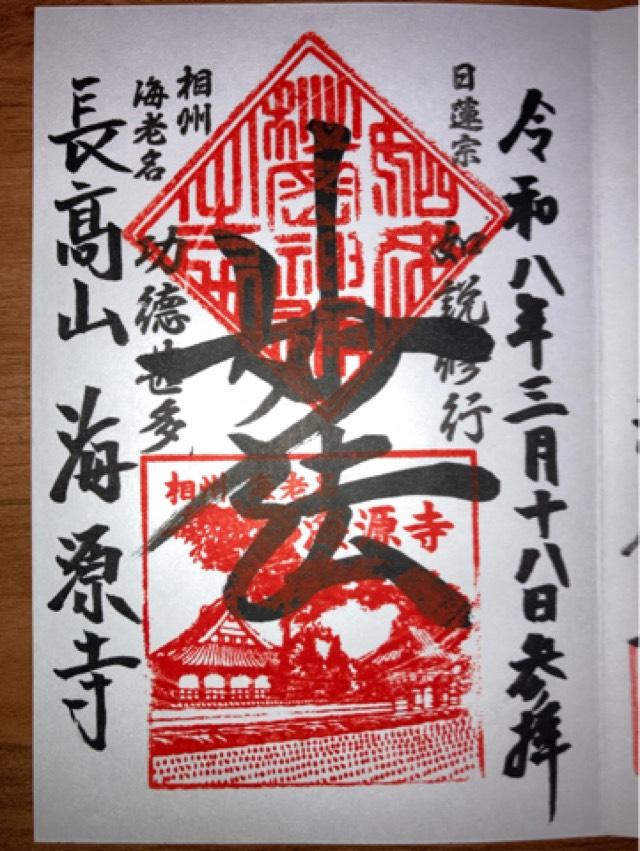 令和八年三月十八日参拝
日蓮宗
如説修行
妙法
相州
海老名
功徳甚多
長高山 海源寺
相州 海老名
海源寺